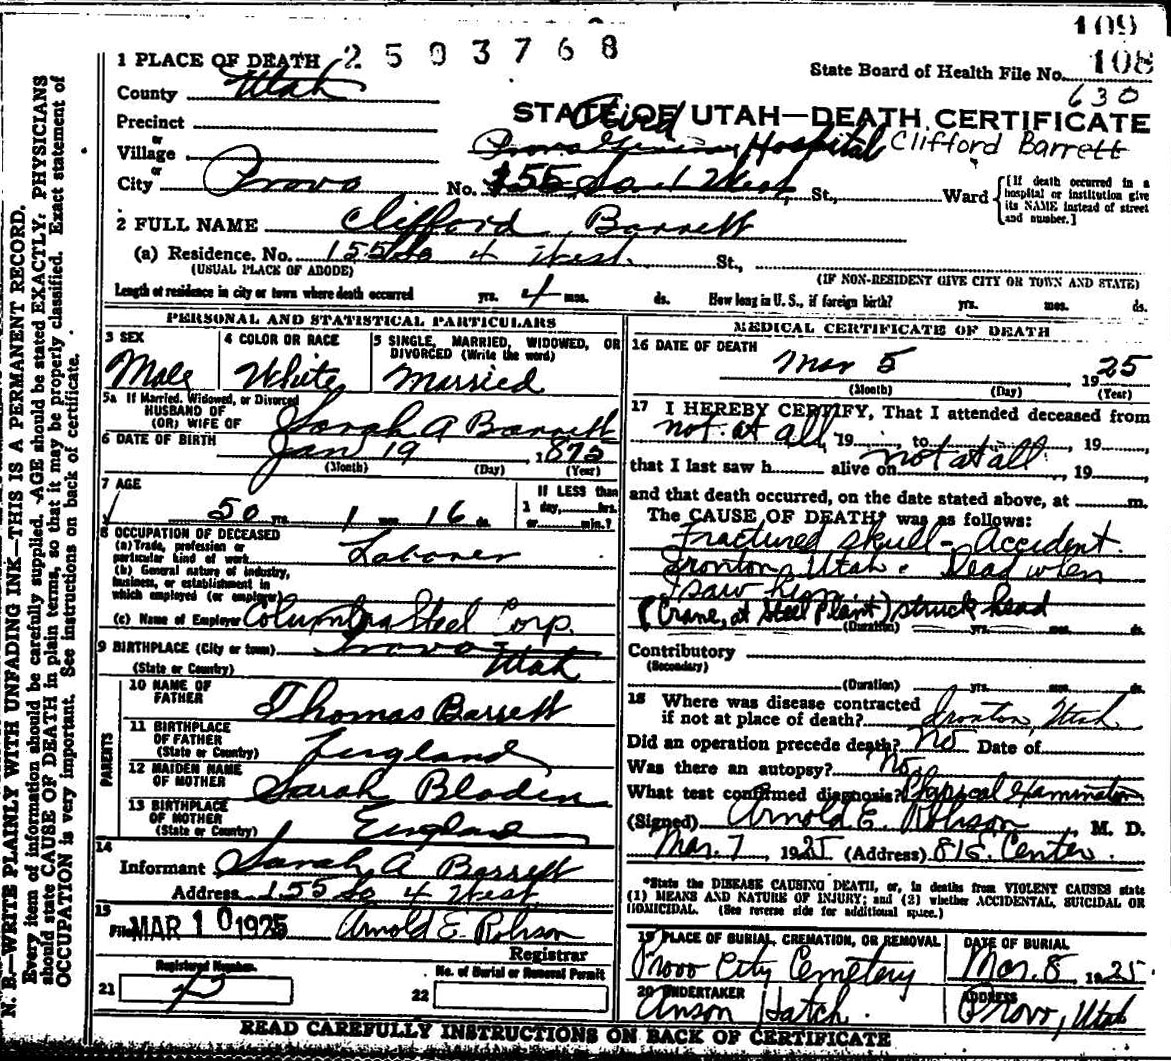 109
2503768
108
1 PLACE OF DEATH
State Board of Health File No.
County Utah
630
STATE OF UTAH—DEATH CERTIFICATE
Precinct
or
Village
Hospital Clifford Barrett
or
City Provo No. 155 So 4 West, St., Ward
[If death occurred in a hospital or institution give its NAME instead of street and number.]
2 FULL NAME Clifford Barrett
(a) Residence. No. 155 So 4 West. St.,
(USUAL PLACE OF ABODE) (IF NON-RESIDENT GIVE CITY OR TOWN AND STATE)
Length of residence in city or town where death occurred yrs. 4 mos. ds. How long in U. S., if foreign birth? yrs. mos. ds.
PERSONAL AND STATISTICAL PARTICULARS
3 SEX
Male
4 COLOR OR RACE
White
5 SINGLE, MARRIED, WIDOWED, OR DIVORCED (Write the word)
Married
5a If Married, Widowed, or Divorced
HUSBAND OF
(OR) WIFE OF Sarah A Barrett
6 DATE OF BIRTH Jan 19 1875
(Month) (Day) (Year)
7 AGE
50 yrs. 1 mos. 16 ds.
IF LESS than
1 day, hrs.
or min.?
8 OCCUPATION OF DECEASED
(a) Trade, profession or
particular kind of work Laborer
(b) General nature of industry,
business, or establishment in
which employed (or employer)
(c) Name of Employer Columbia Steel Corp.
9 BIRTHPLACE (City or town) Provo
(State or Country) Utah
PARENTS
10 NAME OF
FATHER Thomas Barrett
11 BIRTHPLACE
OF FATHER
(State or Country) England
12 MAIDEN NAME
OF MOTHER Sarah Bladen
13 BIRTHPLACE
OF MOTHER
(State or Country) England
14
Informant Sarah A Barrett
Address 155 So 4 West
15
Filed MAR 10 1925 Arnold E. Robison
Registrar
Registered Number
21
No. of Burial or Removal Permit
22
MEDICAL CERTIFICATE OF DEATH
16 DATE OF DEATH
Mar 5 1925
(Month) (Day) (Year)
17 I HEREBY CERTIFY, That I attended deceased from
not at all, 19, to, 19
that I last saw h alive on not at all, 19
and that death occurred, on the date stated above, at m.
The CAUSE OF DEATH* was as follows:
Fractured skull - Accident.
Ironton, Utah. Dead when
I saw him
(Crane, at Steel Plant) struck head
(Duration) yrs. mos. ds.
Contributory
(Secondary)
(Duration) yrs. mos. ds.
18 Where was disease contracted
if not at place of death? Ironton, Utah
Did an operation precede death? No Date of
Was there an autopsy? No
What test confirmed diagnosis? Physical Examination
(Signed) Arnold E. Robison, M. D.
Mar. 7, 1925 (Address) 81 E. Center.
*State the DISEASE CAUSING DEATH, or, in deaths from VIOLENT CAUSES state
(1) MEANS AND NATURE OF INJURY; and (2) whether ACCIDENTAL, SUICIDAL OR
HOMICIDAL. (See reverse side for additional space.)
19 PLACE OF BURIAL, CREMATION, OR REMOVAL
Provo City Cemetery
DATE OF BURIAL
Mar. 8, 1925.
20 UNDERTAKER
Anson Hatch.
ADDRESS
Provo, Utah
READ CAREFULLY INSTRUCTIONS ON BACK OF CERTIFICATE
N. B.—WRITE PLAINLY WITH UNFADING INK—THIS IS A PERMANENT RECORD.
Every item of information should be carefully supplied. AGE should be stated EXACTLY. PHYSICIANS
should state CAUSE OF DEATH in plain terms, so that it may be properly classified. Exact statement of
OCCUPATION is very important. See instructions on back of certificate.